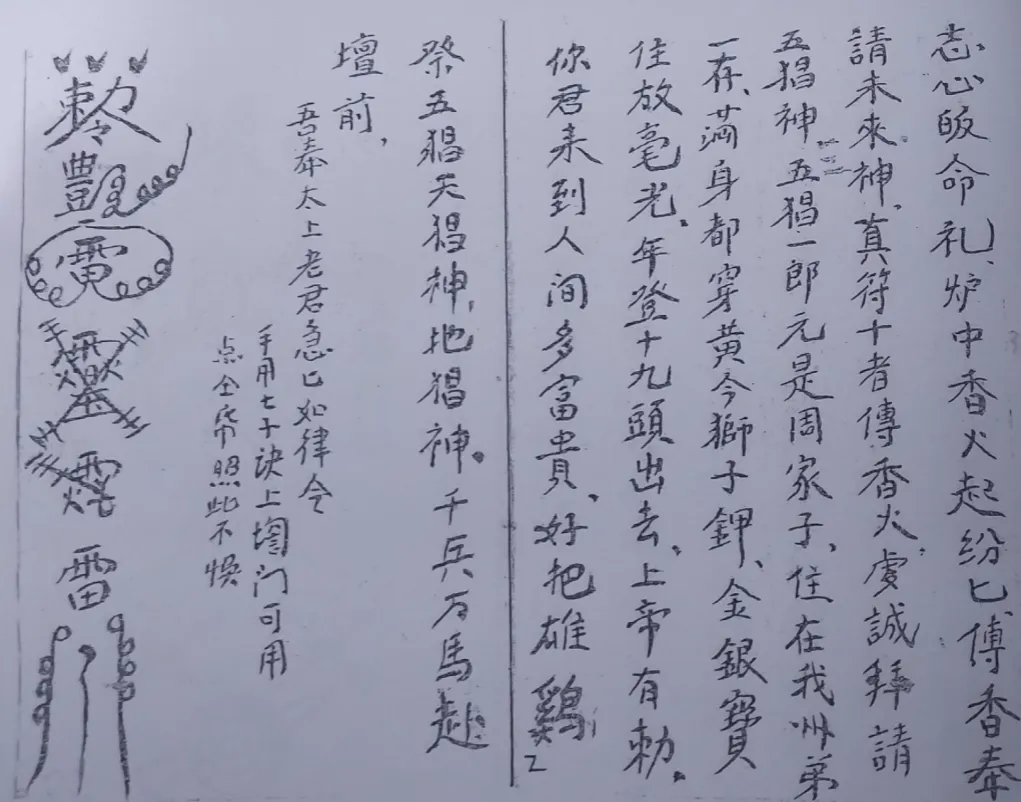 志心皈命礼、炉中香火起纷匕、傳香奉
請未來神、真符十者傳香火、虔誠拜請
五猖神、五猖一郎元是周家子、住在我州弟
一存、满身都穿黄今獅子鉀、金銀寶貝
住放毫光、年登十九頭出去、上帝有勅、
你君来到人间多富貴、好把雄鷄
2
祭五猖天猖神、地猖神。千兵万馬赴
壇前，
吾奉太上老君急匕如律令
手用七子诀上墰门可用
点全帋照此不悮
勅令
雷